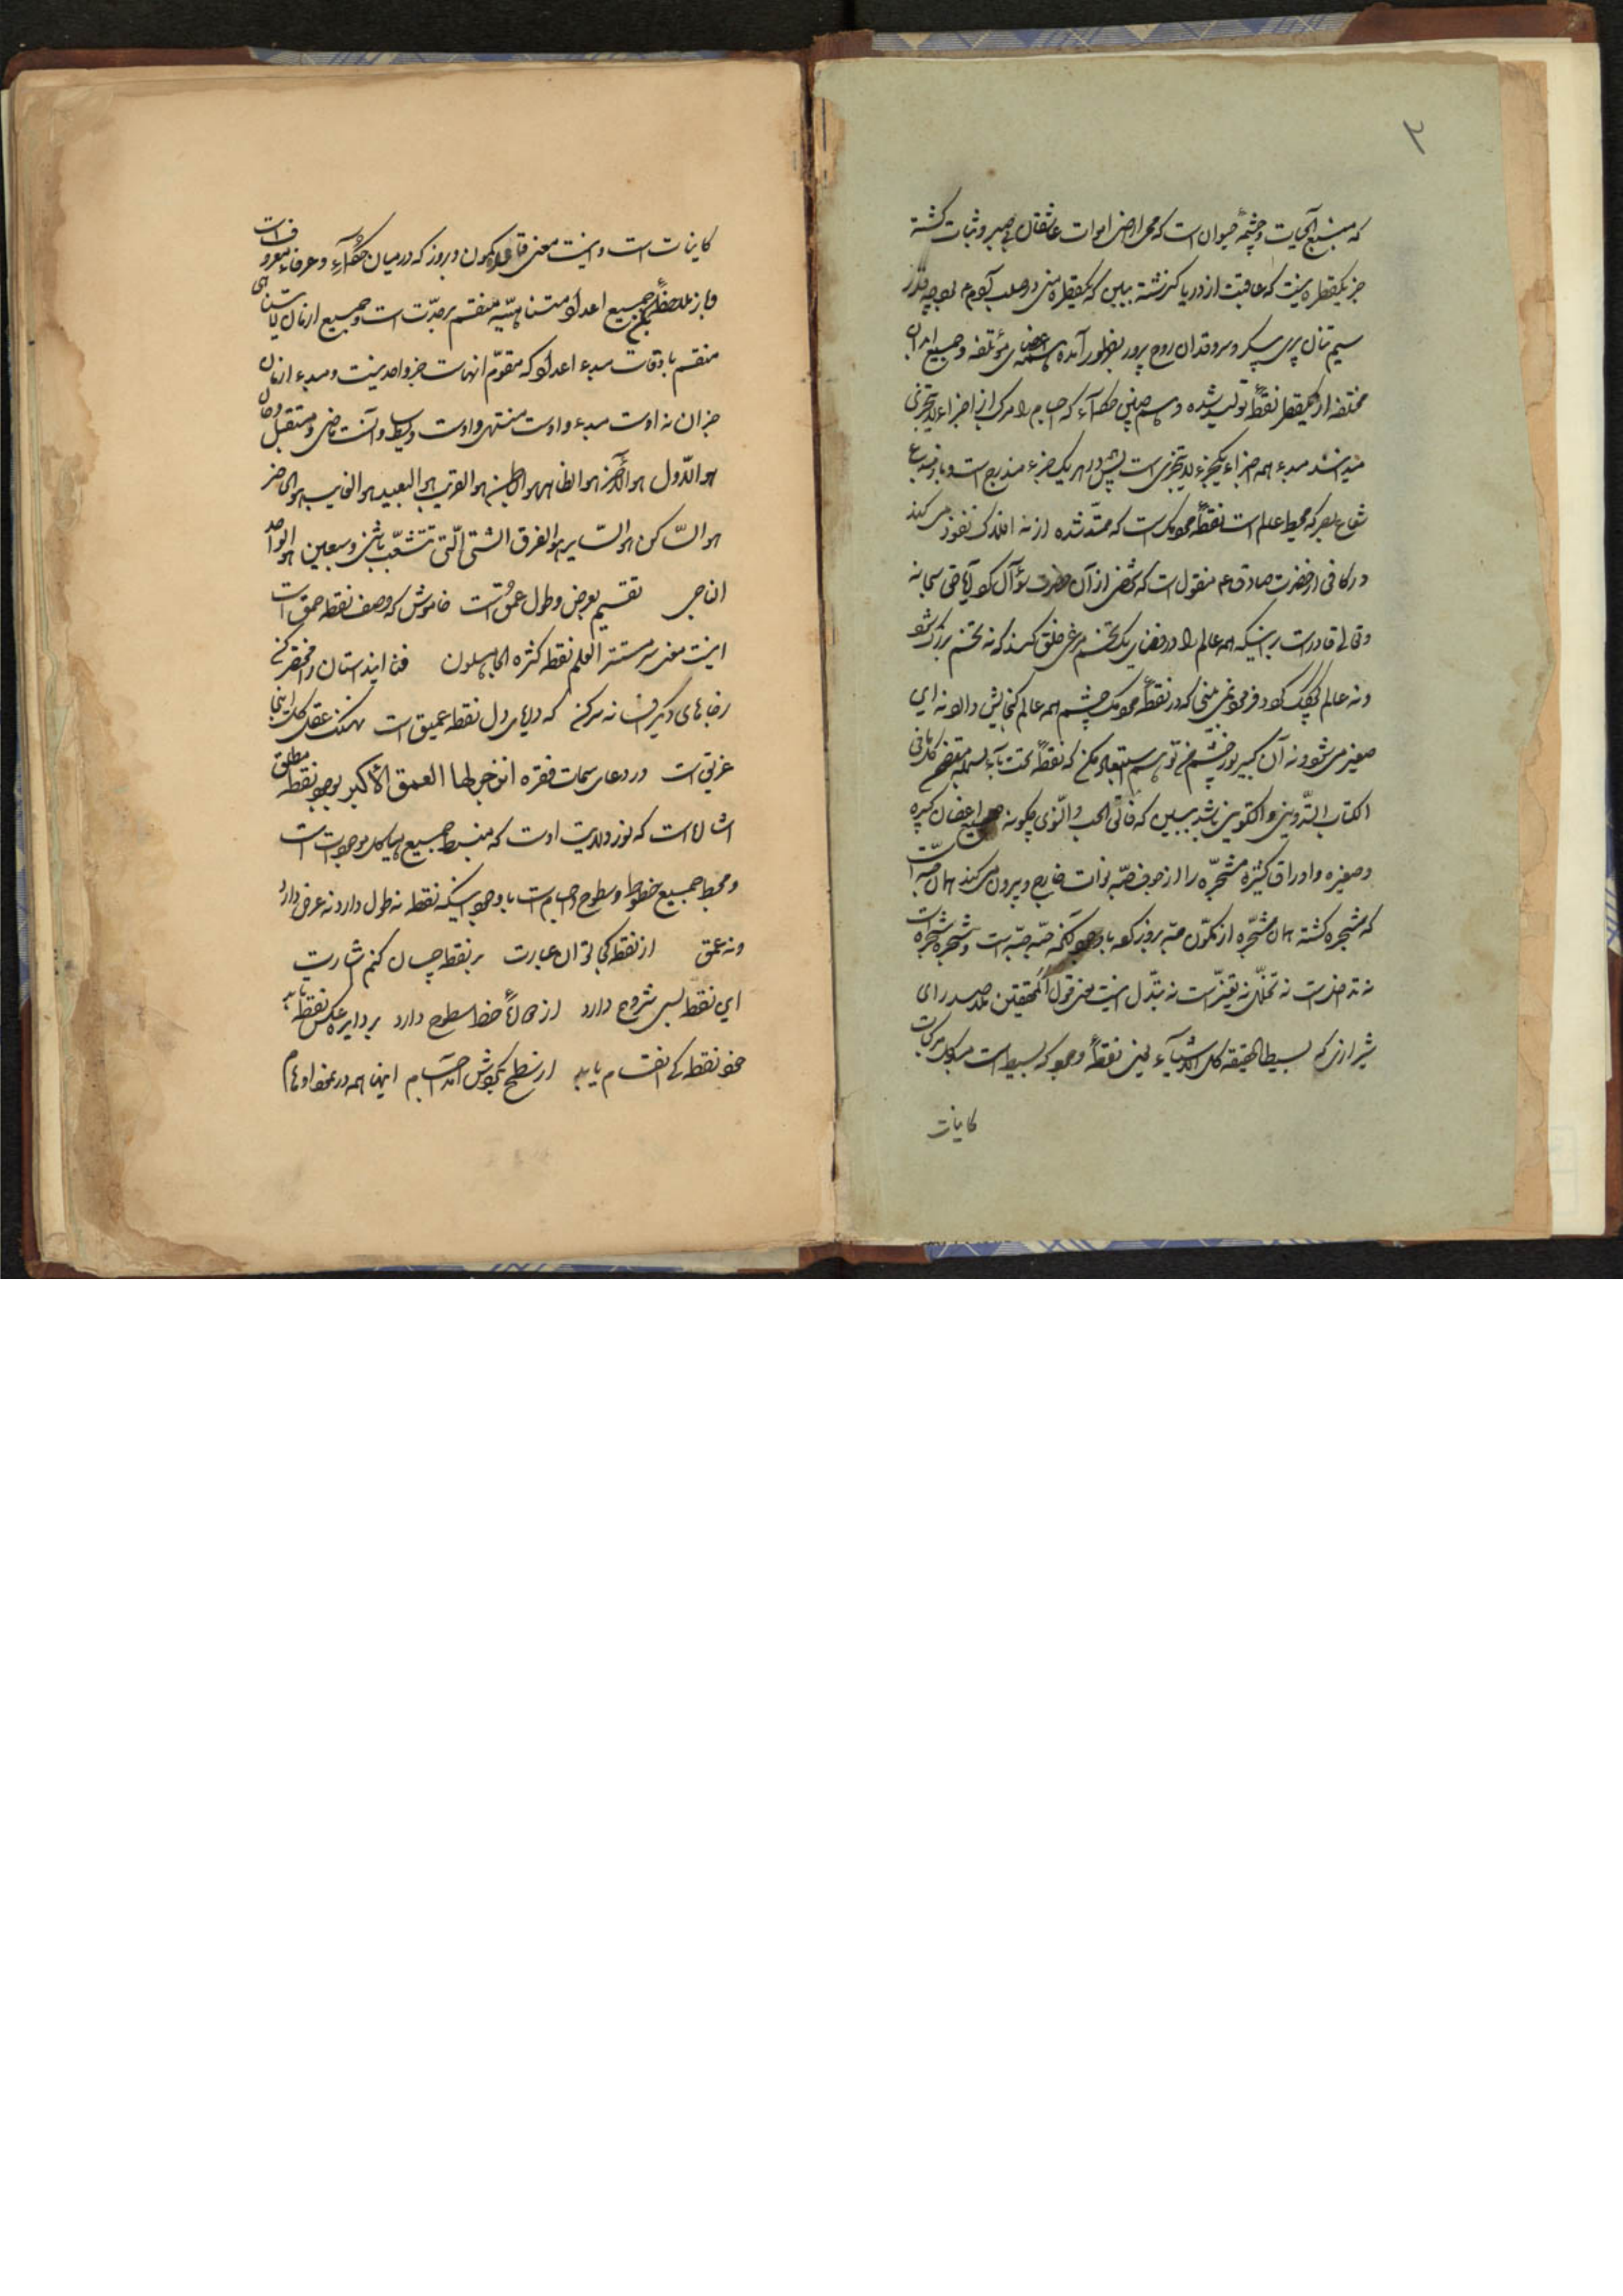 ۲
که منبع الحیات و چشمهٔ حیوان است که محیی اراضی اموات عاشقان بی صبر و ثبات گشته
جز یکقطره نیست که عاقبت از دریا گذشته ببین که یکقطره منی در صلب آدم بوجه قدر
سیم تنان پری پیکر و سروقدان روح پرور بظهور آمده همه اعضای مؤتلفه و جمیع ابدان
مختلفه از یکقطره نقطهٔ تولید شده و همچنین حکمآء که اجسام را مرکب از اجزاء لایتجزی
میدانند مبدء همه اجزاء یکجزء لایتجزی است پس همه در هر یک جزء مندرج است و باز
شعاع بصر که محیط عالم است نقطهٔ مردمک است که ممتد شده از نه افلاک نفوذ می کند
در کافی از حضرت صادق ع م منقول است که شخصی از آن حضرت سؤال کرد آیا حق سبحانه
و تعالی قادر است بر اینکه همه عالم را در فضای یک تخم مرغی خلق کند که نه تخم بزرگ شود
و نه عالم کوچک گردد فرمود نمی بینی که در نقطهٔ مردمک چشم همه عالم گنجایش دارد نه این
صغیر می شود و نه آن کبیر نور چشم من تو هم استبعاد مکن که نقطهٔ تحت بآء بسمله متضمن کل مافی
الکتاب التدوینی و التکوینی باشد ببین که فالق الحب و النوی چگونه جمیع اغصان کبیره
و صغیره و اوراق کثیره مشجره را از جوف حبه نوات خارج و بیرون می کند همان حبه است
که مشجره گشته همان مشجره از تکون حبه بروز کرده باوجود آنکه حبه حبه است و شجره شجره است
نه تداخل است نه تخلل نه تغیر است نه تبدل اینست معنی قول المحققین ملاصدرای
شیرازی که بسیط الحقیقه کل الاشیآء یعنی نقطهٔ وجود که بسیط است مبدء کل مرکبات
کاینات
کاینات است و اینست معنی قاعده کمون و بروز که در میان حکمآء و عرفاء معروف است
و باز ملاحظه کن جمیع اعداد متناهیه منقسم بر وحدت است و جمیع ازمان لایتناهی
منقسم باوقات مبدء اعداد که مقوم انهاست جز واحد نیست و مبدء ازمان
جز آن نه اوست مبدء و اوست منتهی و اوست وسط و آنست ماضی و مستقبل و حال
هو الاول هو الآخر هو الظاهر هو الباطن هو القریب هو البعید هو الغایب هو الحاضر
هو الساکن هو السایر هو الفرق الشتی التی تتشعب باثنی و سبعین هو الواحد
الناجی تقسیم بعرض و طول و عمق است خاموش که وصف نقطه حمق است
اینست معنی سر مستتر العلم نقطه کثره الجاهلون فنا این داستان را مختصر کن
رضا های دیگر افسانه سر کن که دریای دل نقطه عمیق است نهنگ عقل کل اینجا
غریق است و در دعای سمات فقره انزجر لها العمق الاکبر بوجود نقطه مطلق
اشاره است که نور ولایت اوست که منبسط جمیع هیاکل موجودات است
و محیط جمیع خطوط و سطوح و اجسام است باوجود اینکه نقطه نه طول دارد نه عرض دارد
و نه عمق از نقطه کجا توان عبارت بر نقطه چسان کنم اشارت
این نقطه بسی شروح دارد از خط سطوح دارد بر دایره عکس نقطه تابد
خود نقطه کی انقسام یابد از سطح اجسام اینها همه در عقد اوهام